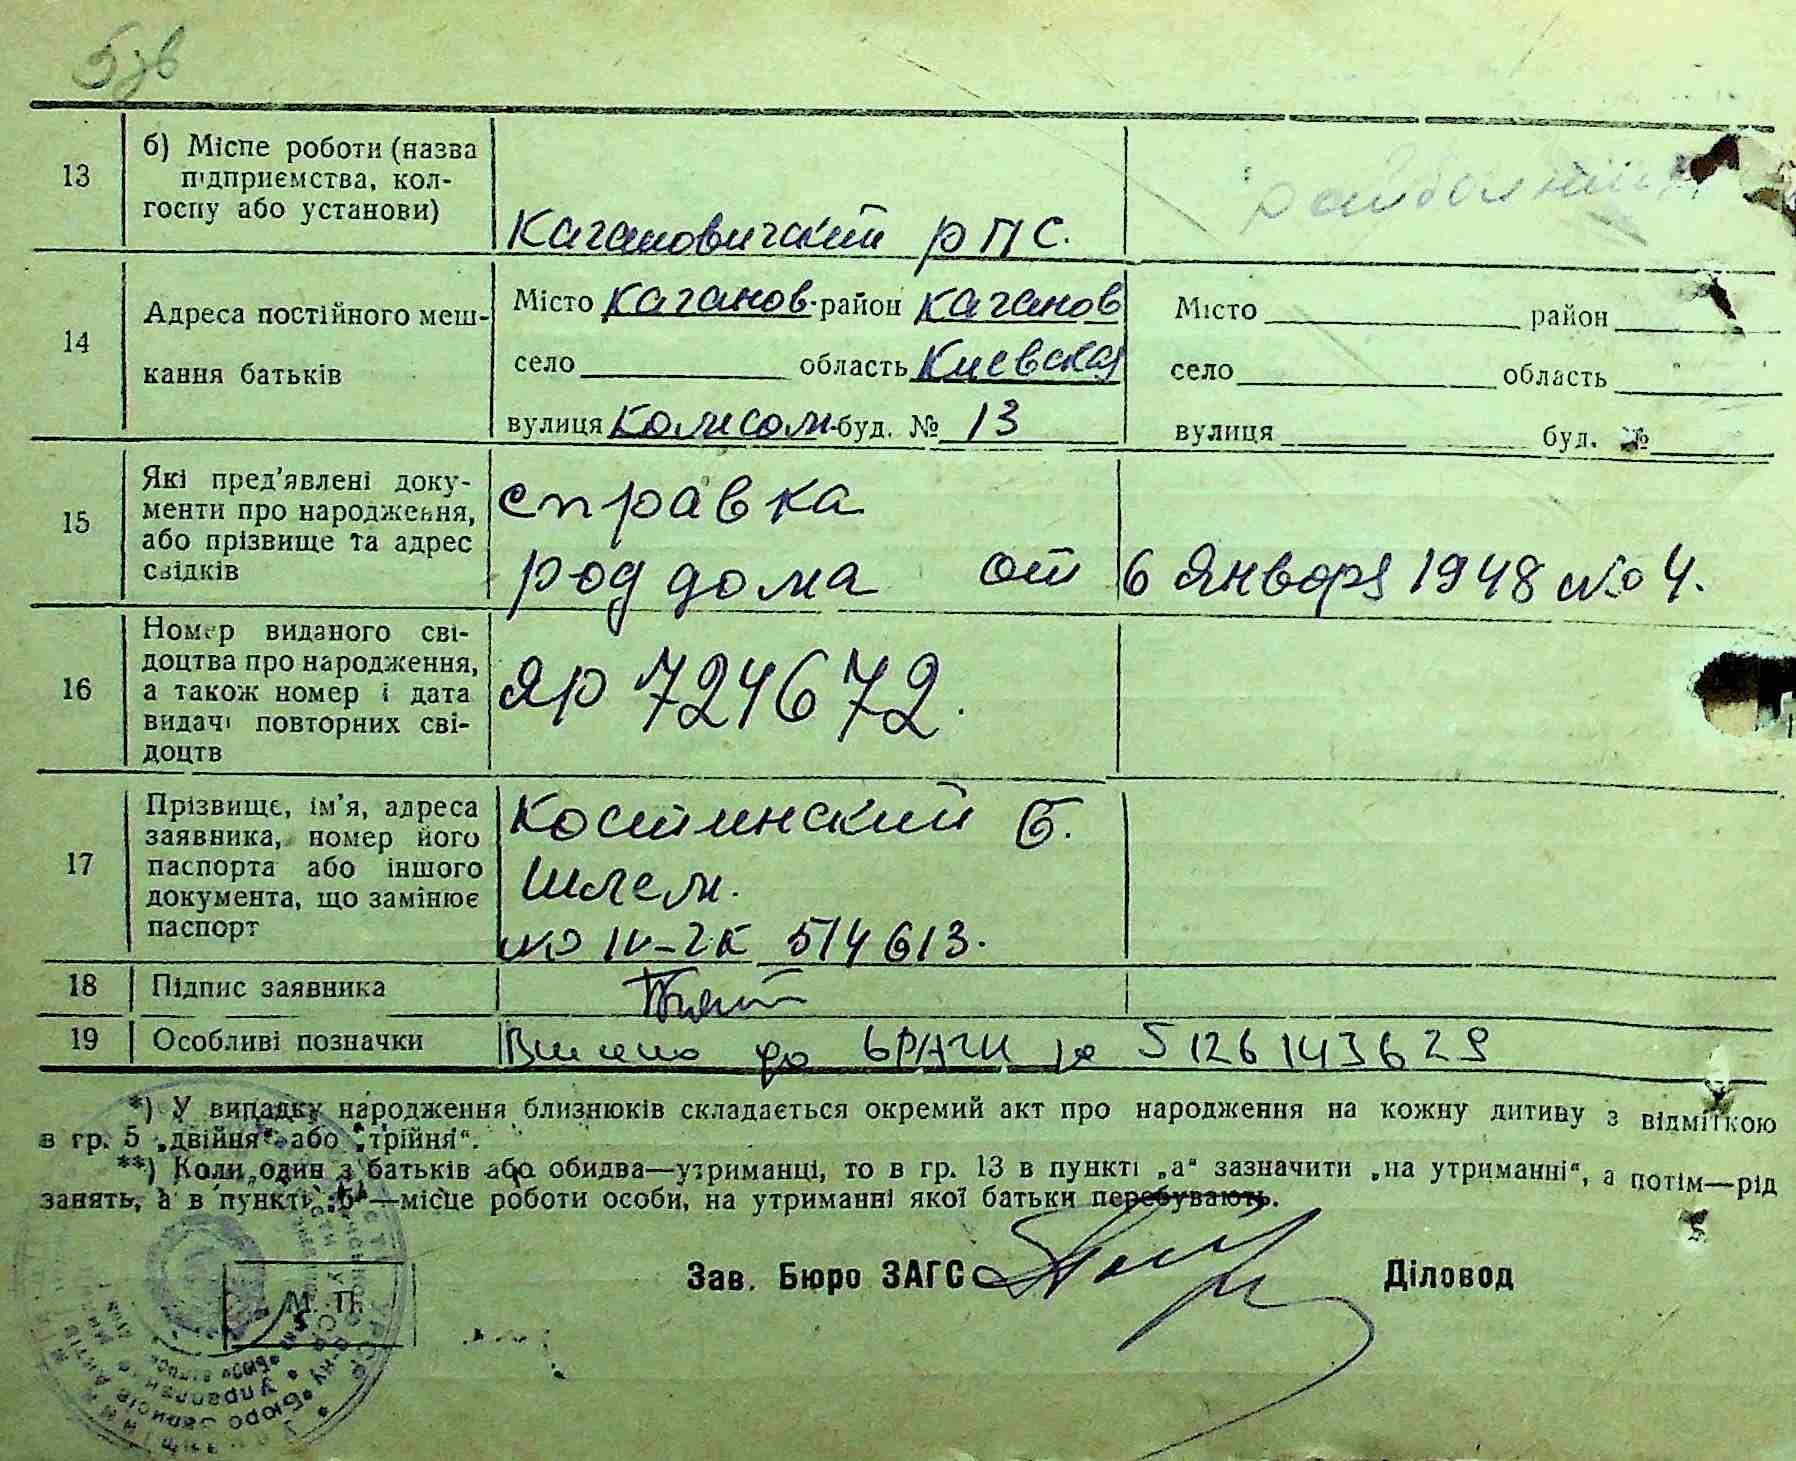 5 зв
13 б) Місце роботи (назва
підприємства, кол-
госпу або установи)
Кагановичский рПС.
райбольниц
14 Адреса постійного меш-
кання батьків
Місто Каганов. район Каганов
село область Киевская
вулиця Комсом. буд. № 13
Місто район
село область
вулиця буд. №
15 Які пред'явлені доку-
менти про народження,
або прізвище та адрес
свідків
справка
род дома от 6 января 1948 No 4.
16 Номер виданого сві-
доцтва про народження,
а також номер і дата
видачі повторних сві-
доцтв
ЯР 724672.
17 Прізвище, ім'я, адреса
заявника, номер його
паспорта або іншого
документа, що замінює
паспорт
Костинский Б.
Шлем.
No IV-ЧК 514613.
18 Підпис заявника
19 Особливі позначки
Внесено до ДРАЦС за 5126143629
*) У випадку народження близнюків складається окремий акт про народження на кожну дитину з відміткою
в гр. 5 „двійня“ або „трійня“.
**) Коли один з батьків або обидва—утриманці, то в гр. 13 в пункті „а“ зазначити „на утриманні“, а потім—рід
занять, а в пункті „б“—місце роботи особи, на утриманні якої батьки перебувають.
Зав. Бюро ЗАГС
Діловод
М. П.